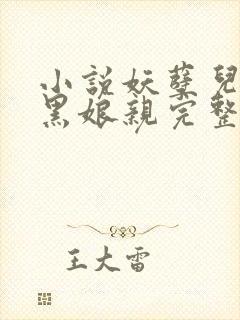 小说妖孽兒
黑娘親完整
王大雷